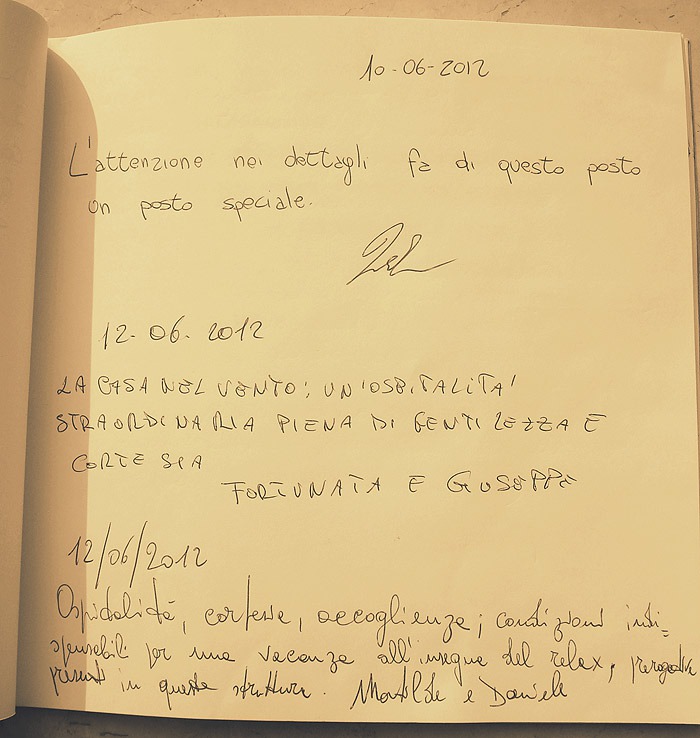 10-06-2012
L'attenzione nei dettagli fa di questo posto
un posto speciale.
12-06-2012
LA CASA NEL VENTO: UN'OSPITALITA'
STRAORDINARIA PIENA DI GENTILEZZA E
CORTESIA
FORTUNATA E GIUSEPPE
12/06/2012
Ospitalità, cortesia, accoglienza; condizioni indi=
spensabili per una vacanza all'insegna del relax, prerogative
presenti in questa struttura. Matilde e Daniele